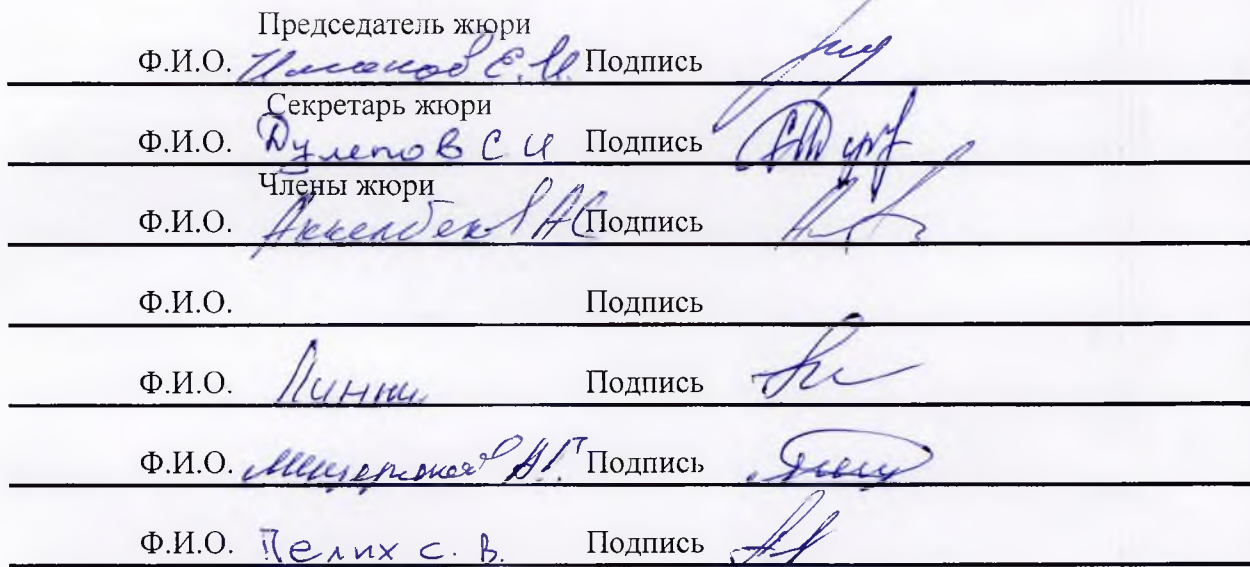 Председатель жюри
Ф.И.О. Иманов Е.И. Подпись
Секретарь жюри
Ф.И.О. Дулепов С И Подпись
Члены жюри
Ф.И.О. Подпись
Ф.И.О. Подпись
Ф.И.О. Подпись
Ф.И.О. Подпись
Ф.И.О. Пелих С. В. Подпись